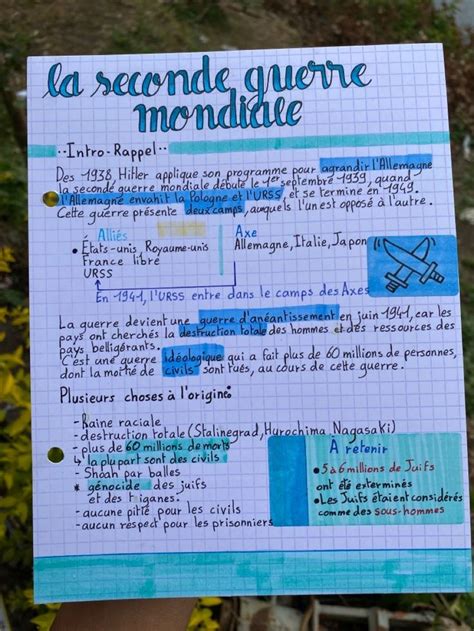 la seconde guerre
mondiale
..Intro-Rappel..
Des 1938, Hitler applique son programme pour agrandir l'Allemagne
la seconde guerre mondiale débute le 1er septembre 1939, quand
l'Allemagne envahit la Pologne et l'URSS, et se termine en 1949.
Cette guerre présente deux camps, auxquels l'un est opposé à l'autre.
Alliés
Axe
• États-unis Royaume-unis
France libre
URSS
Allemagne, Italie, Japon
En 1941, l'URSS entre dans le camps des Axes
La guerre devient une guerre d'anéantissement en juin 1941, car les
pays ont cherchés la destruction totale des hommes et des ressources des
pays belligérants.
C'est une guerre idéologique qui a fait plus de 60 millions de personnes,
dont la moitié de civils sont tués, au cours de cette guerre.
Plusieurs choses à l'origine:
- Haine raciale
- destruction totale (Stalinegrad, Hurochima, Nagasaki)
- plus de 60 millions de morts
↳ la plupart sont des civils
- Shoah par balles
* génocide des juifs
et des tziganes.
- aucune pitié pour les civils
- aucun respect pour les prisonniers
À retenir
• 5 à 6 millions de Juifs
ont été exterminés
• Les Juifs étaient considérés
comme des sous-hommes